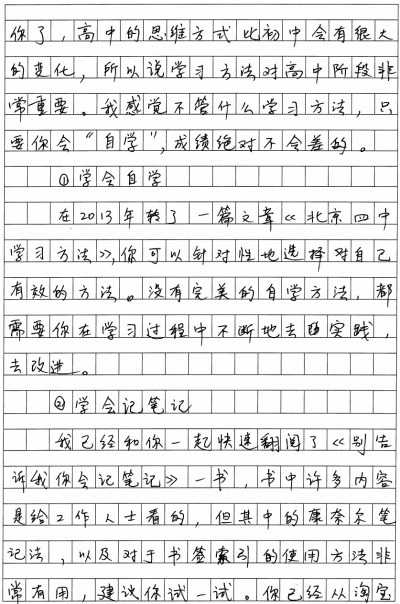 你了，高中的思维方式比初中会有很大
的变化，所以说学习方法对高中阶段非
常重要。我感觉不管什么学习方法，只
要你会“自学”，成绩绝对不会差的。
①学会自学
在2013年转了一篇文章《北京四中
学习方法》，你可以针对性地选择对自己
有效的方法。没有完美的自学方法，都
需要你在学习过程中不断地去实践，
去改进。
②学会记笔记
我已经和你一起快速翻阅了《别告
诉我你会记笔记》一书，书中许多内容
是给工作人士看的，但其中的康奈尔笔
记法，以及对于书签索引的使用方法非
常有用，建议你试一试。你已经从淘宝